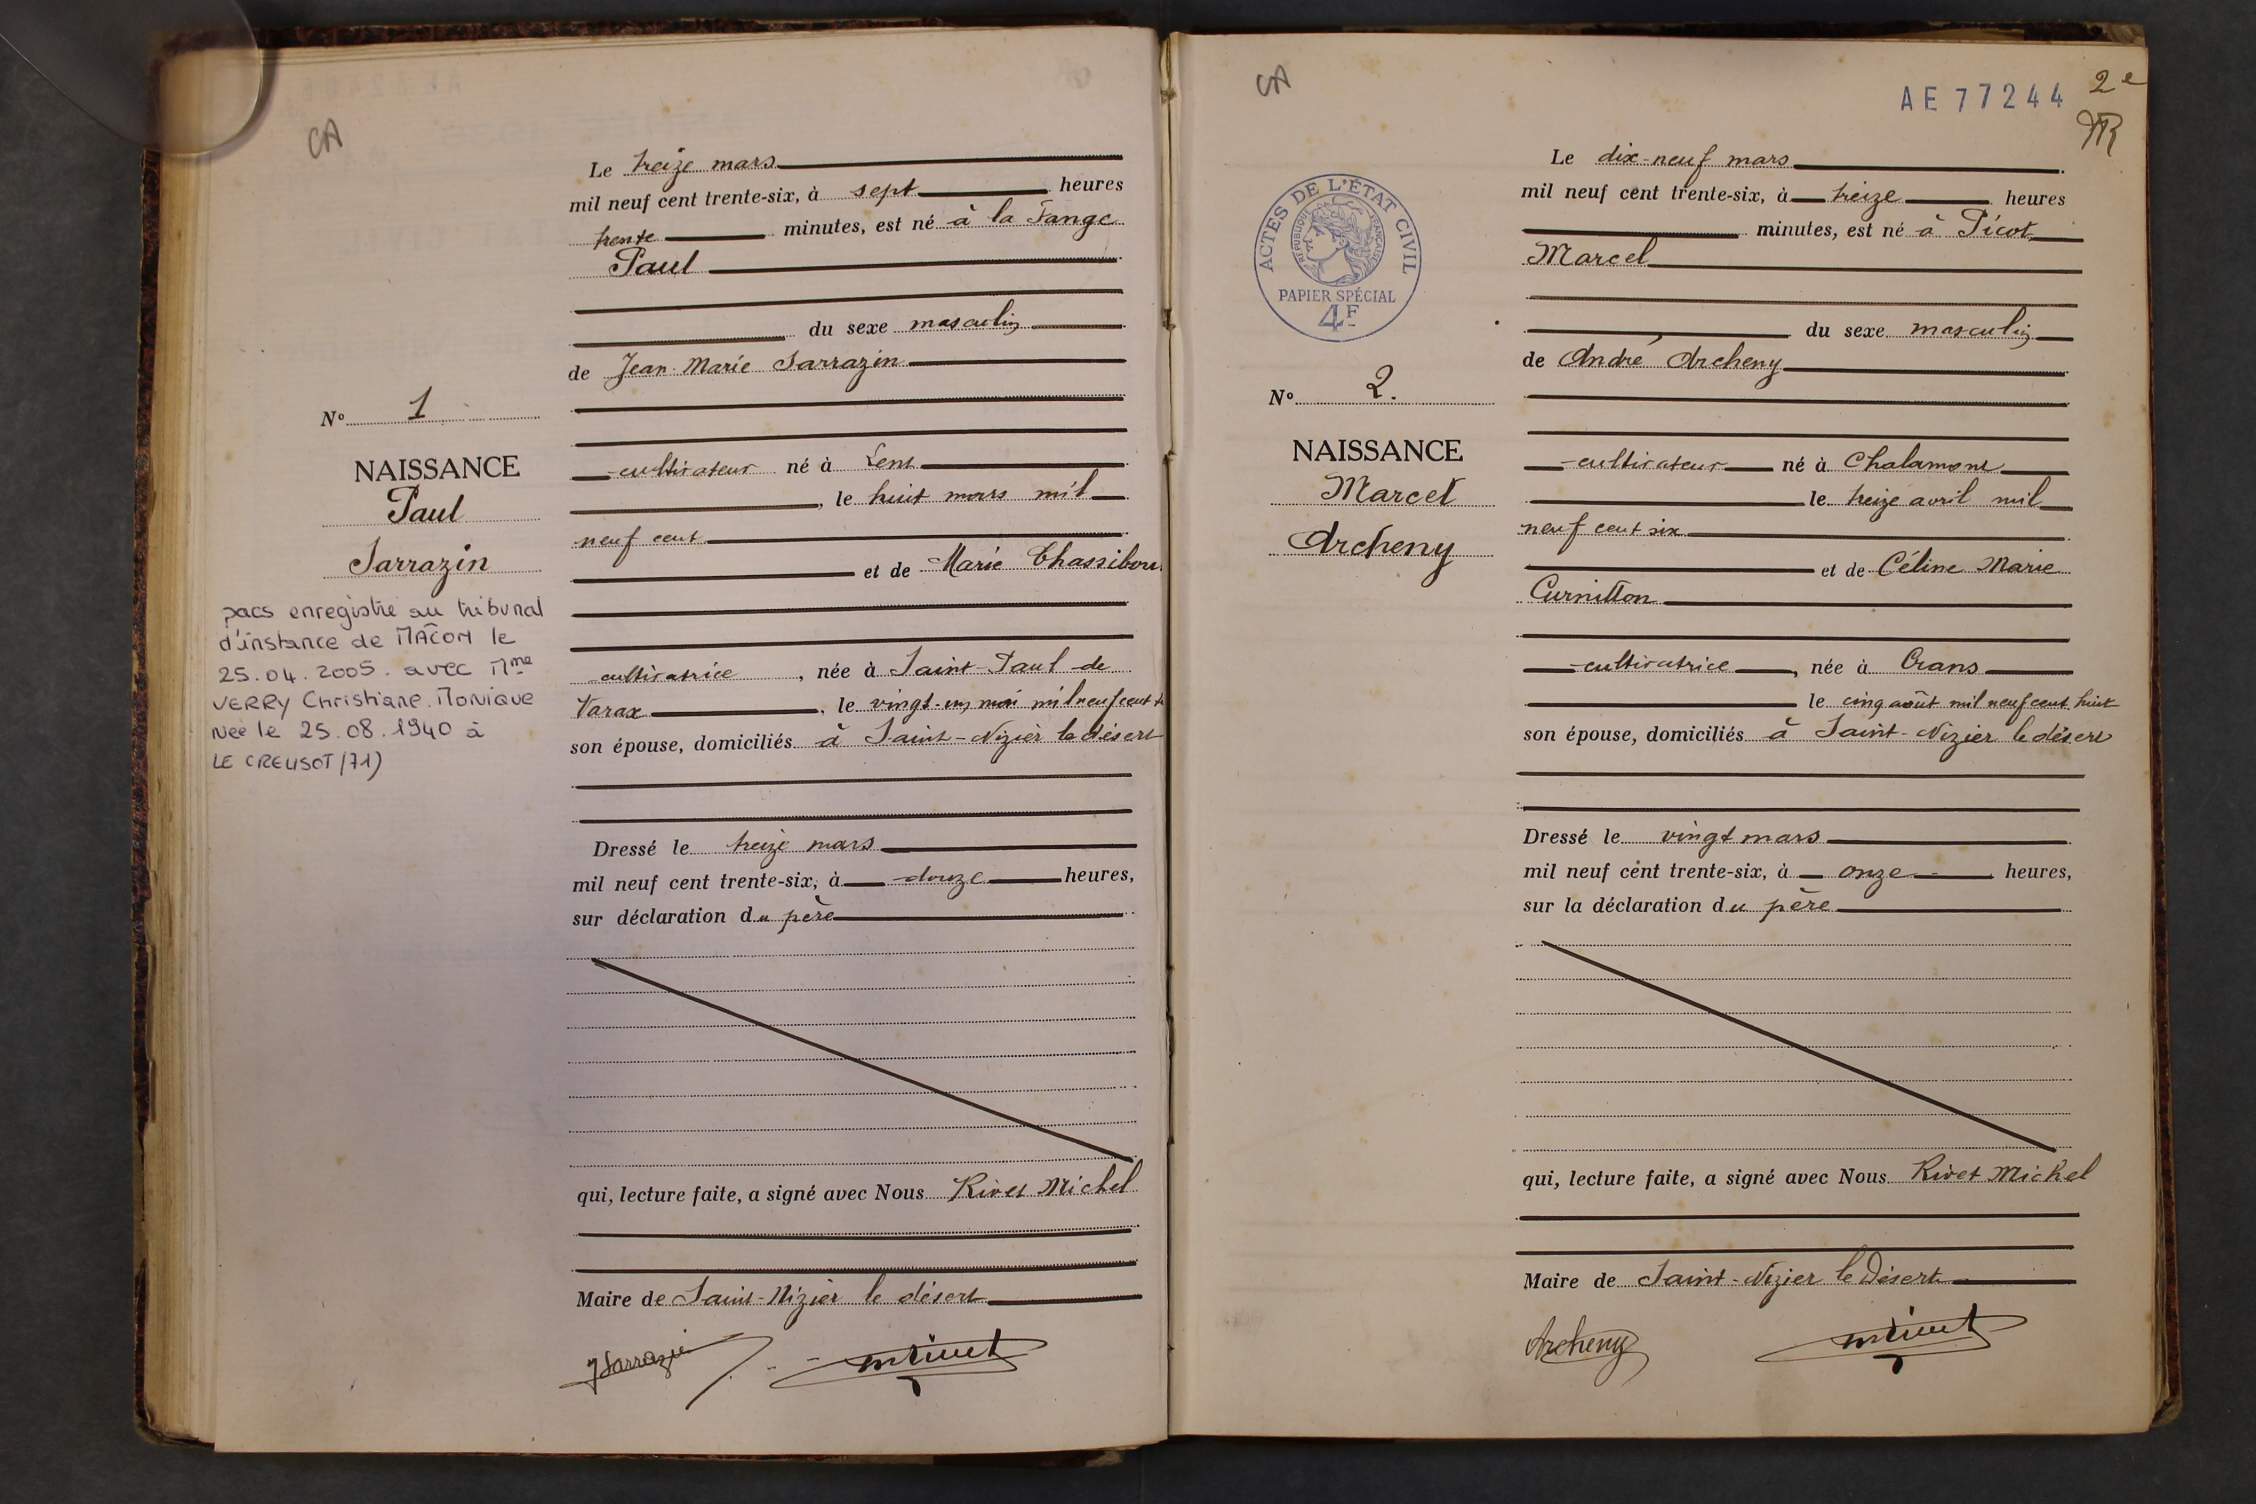 CA
Le treize mars
mil neuf cent trente-six, à sept heures
trente minutes, est né à la Fange
Paul
du sexe masculin
de Jean Marie Sarrazin
N° 1
NAISSANCE
Paul
Sarrazin
pacs enregistré au tribunal
d'instance de MÂCON le
25.04.2005. avec Mme
VERRY Christiane Monique
née le 25.08.1940 à
LE CREUSOT (71)
cultivateur né à Lent
, le huit mars mil
neuf cent
et de Marie Chassibou
cultivatrice, née à Saint Paul de
Varax, le vingt-un mai mil neuf cent
son épouse, domiciliés à Saint-Nizier le désert
Dressé le treize mars
mil neuf cent trente-six, à douze heures,
sur déclaration du père
qui, lecture faite, a signé avec Nous Rivet Michel
Maire de Saint-Nizier le désert
J Sarrazin
mrivet
CA
AE 77244
2e
ACTES DE L'ÉTAT CIVIL
RÉPUBLIQUE FRANÇAISE
PAPIER SPÉCIAL
4F
Le dix-neuf mars
mil neuf cent trente-six, à treize heures
minutes, est né à Picot
Marcel
du sexe masculin
de André Archeny
N° 2.
NAISSANCE
Marcel
Archeny
cultivateur né à Chalamont
le treize avril mil
neuf cent six
et de Céline Marie
Curnillon
cultivatrice, née à Crans
le cinq août mil neuf cent huit
son épouse, domiciliés à Saint-Nizier le désert
Dressé le vingt mars
mil neuf cent trente-six, à onze heures,
sur la déclaration du père
qui, lecture faite, a signé avec Nous Rivet Michel
Maire de Saint-Nizier le Désert
Archeny
mrivet